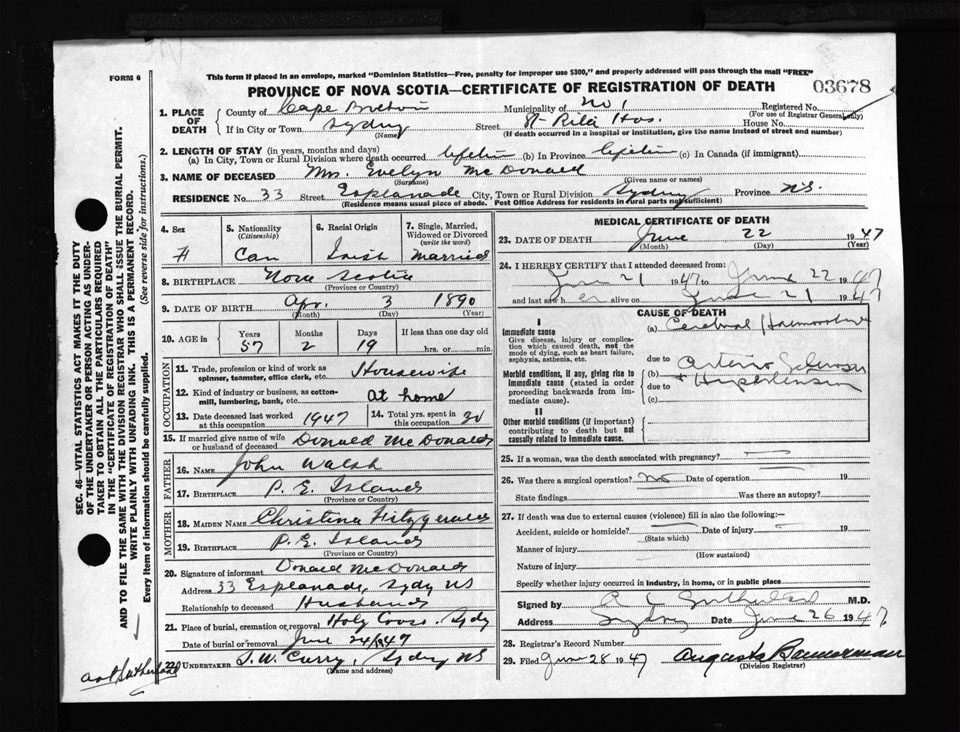 FORM 6
This form if placed in an envelope, marked "Dominion Statistics—Free, penalty for improper use $300," and properly addressed will pass through the mail "FREE"
PROVINCE OF NOVA SCOTIA—CERTIFICATE OF REGISTRATION OF DEATH 03678
1. PLACE OF DEATH
County of Cape Breton Municipality of No 1 Registered No.
(For use of Registrar General only)
If in City or Town Sydney Street St Rita Hos. House No.
(Name) (If death occurred in a hospital or institution, give the name instead of street and number)
2. LENGTH OF STAY (in years, months and days)
(a) In City, Town or Rural Division where death occurred lifetime (b) In Province lifetime (c) In Canada (if immigrant)
3. NAME OF DECEASED Mrs. Evelyn McDonald
(Surname) (Given name or names)
RESIDENCE No. 33 Street Esplanade City, Town or Rural Division Sydney Province N.S.
(Residence means usual place of abode. Post Office Address for residents in rural parts not sufficient)
4. Sex 5. Nationality (Citizenship) 6. Racial Origin 7. Single, Married, Widowed or Divorced (write the word)
F Can Irish Married
8. BIRTHPLACE Nova Scotia
(Province or Country)
9. DATE OF BIRTH Apr. 3 1890
(Month) (Day) (Year)
10. AGE in Years Months Days If less than one day old
57 2 19 hrs. or min.
OCCUPATION
11. Trade, profession or kind of work as spinner, teamster, office clerk, etc. Housewife
12. Kind of industry or business, as cotton-mill, lumbering, bank, etc. at home
13. Date deceased last worked at this occupation 1947 14. Total yrs. spent in this occupation 30
15. If married give name of wife or husband of deceased Donald McDonald
FATHER
16. NAME John Walsh
17. BIRTHPLACE P. E. Island
(Province or Country)
MOTHER
18. MAIDEN NAME Christina Fitzgerald
19. BIRTHPLACE P. E. Island
(Province or Country)
20. Signature of informant Donald McDonald
Address 33 Esplanade, Sydy NS
Relationship to deceased Husband
21. Place of burial, cremation or removal Holy Cross. Sydy
Date of burial or removal June 24/1947
22. UNDERTAKER T. W. Curry, Sydney NS
(Name and address)
MEDICAL CERTIFICATE OF DEATH
23. DATE OF DEATH June 22 1947
(Month) (Day) (Year)
24. I HEREBY CERTIFY that I attended deceased from:
June 21 1947 to June 22 1947
and last saw h er alive on June 21 1947
CAUSE OF DEATH
I
Immediate cause (a) Cerebral Haemorrhage
Give disease, injury or complication which caused death, not the mode of dying, such as heart failure, asphyxia, asthenia, etc.
due to
Morbid conditions, if any, giving rise to immediate cause (stated in order proceeding backwards from immediate cause).
(b) Arterio Sclerosis
due to + Hypertension
(c)
II
Other morbid conditions (if important) contributing to death but not causally related to immediate cause.
25. If a woman, was the death associated with pregnancy?
26. Was there a surgical operation? No Date of operation 19
State findings Was there an autopsy?
27. If death was due to external causes (violence) fill in also the following:—
Accident, suicide or homicide? Date of injury 19
(State which)
Manner of injury
(How sustained)
Nature of injury
Specify whether injury occurred in industry, in home, or in public place
Signed by Sutherland M.D.
Address Sydney Date June 26 1947
28. Registrar's Record Number
29. Filed June 28 1947 Augusta Bannerman
(Division Registrar)
SEC. 46—VITAL STATISTICS ACT MAKES IT THE DUTY
OF THE UNDERTAKER OR PERSON ACTING AS UNDERTAKER TO OBTAIN ALL THE PARTICULARS REQUIRED
IN THE "CERTIFICATE OF REGISTRATION OF DEATH"
AND TO FILE THE SAME WITH THE DIVISION REGISTRAR WHO SHALL ISSUE THE BURIAL PERMIT.
WRITE PLAINLY WITH UNFADING INK. THIS IS A PERMANENT RECORD.
Every item of information should be carefully supplied. (See reverse side for instructions.)